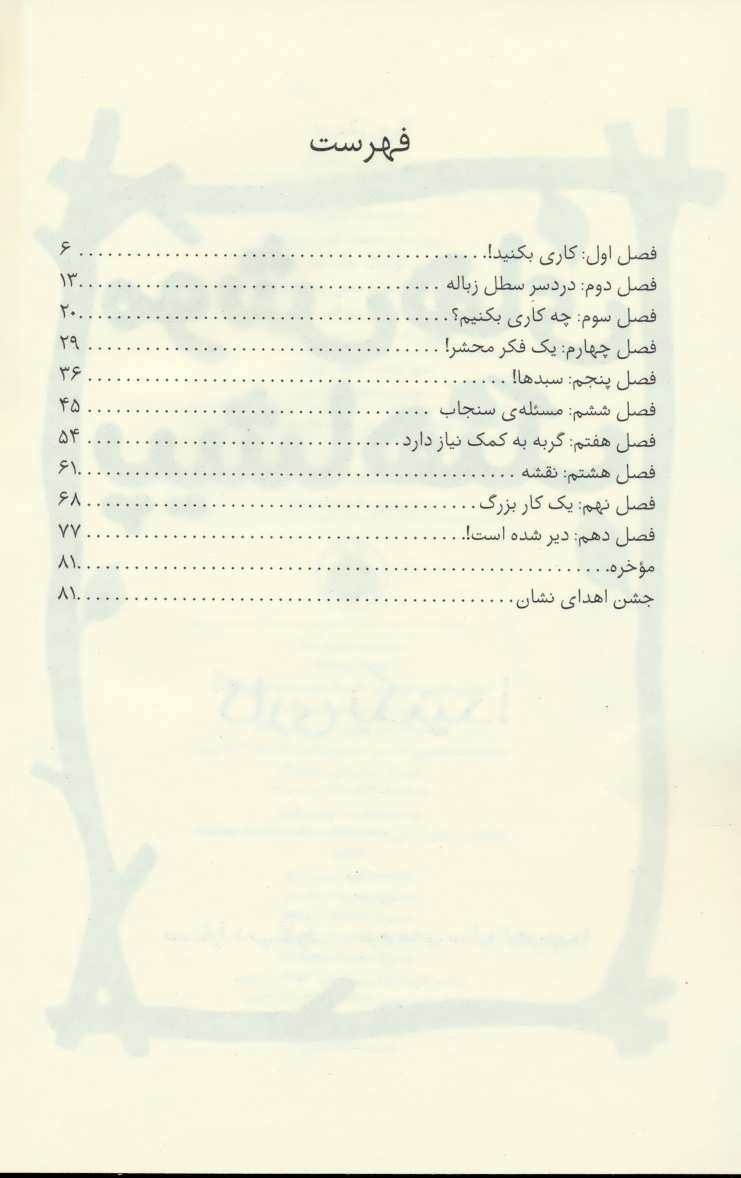 فهرست
فصل اول: کاری بکنید!. . . . . . . . . . . . . . . . . . . . . . . . . . . . . . . . . . . . . . . . . . ۶
فصل دوم: دردسرِ سطل زباله . . . . . . . . . . . . . . . . . . . . . . . . . . . . . . . . . . . . . .۱۳
فصل سوم: چه کاری بکنیم؟. . . . . . . . . . . . . . . . . . . . . . . . . . . . . . . . . . . . . . .۲۰
فصل چهارم: یک فکر محشر!. . . . . . . . . . . . . . . . . . . . . . . . . . . . . . . . . . . . . ۲۹
فصل پنجم: سبدها! . . . . . . . . . . . . . . . . . . . . . . . . . . . . . . . . . . . . . . . . . . . . ۳۶
فصل ششم: مسئله‌ی سنجاب . . . . . . . . . . . . . . . . . . . . . . . . . . . . . . . . . . . . ۴۵
فصل هفتم: گربه به کمک نیاز دارد. . . . . . . . . . . . . . . . . . . . . . . . . . . . . . . . . ۵۴
فصل هشتم: نقشه . . . . . . . . . . . . . . . . . . . . . . . . . . . . . . . . . . . . . . . . . . . . . .۶۱
فصل نهم: یک کار بزرگ. . . . . . . . . . . . . . . . . . . . . . . . . . . . . . . . . . . . . . . . . ۶۸
فصل دهم: دیر شده است!. . . . . . . . . . . . . . . . . . . . . . . . . . . . . . . . . . . . . . . ۷۷
مؤخره. . . . . . . . . . . . . . . . . . . . . . . . . . . . . . . . . . . . . . . . . . . . . . . . . . . . . . . .۸۱
جشن اهدای نشان. . . . . . . . . . . . . . . . . . . . . . . . . . . . . . . . . . . . . . . . . . . . . .۸۱